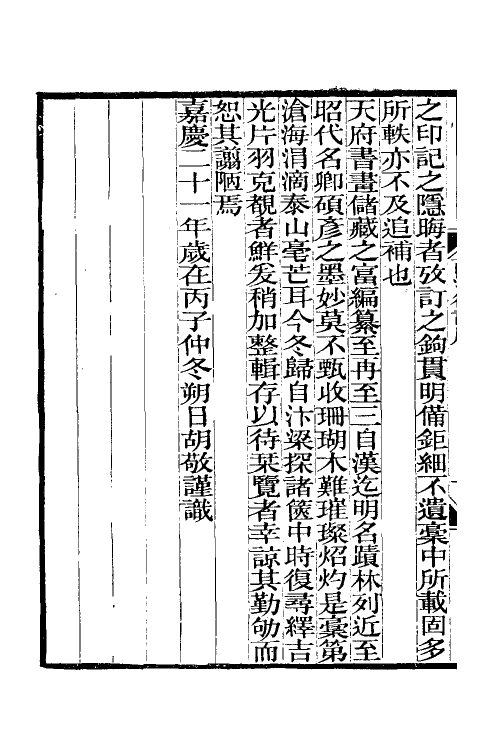 之印記之隱晦者攷訂之鉤貫明備鉅細不遺稾中所載固多
所軼亦不及追補也
天府書畫儲藏之富編纂至再至三自漢迄明名蹟林列近至
昭代名卿碩彥之墨妙莫不甄收珊瑚木難璀璨炤灼是稾第
滄海涓滴泰山毫芒耳今冬歸自汴梁探諸篋中時復尋繹吉
光片羽克覩者鮮爰稍加整輯存以待栞覽者幸諒其勤劬而
恕其譾陋焉
嘉慶二十一年歲在丙子仲冬朔日胡敬謹識